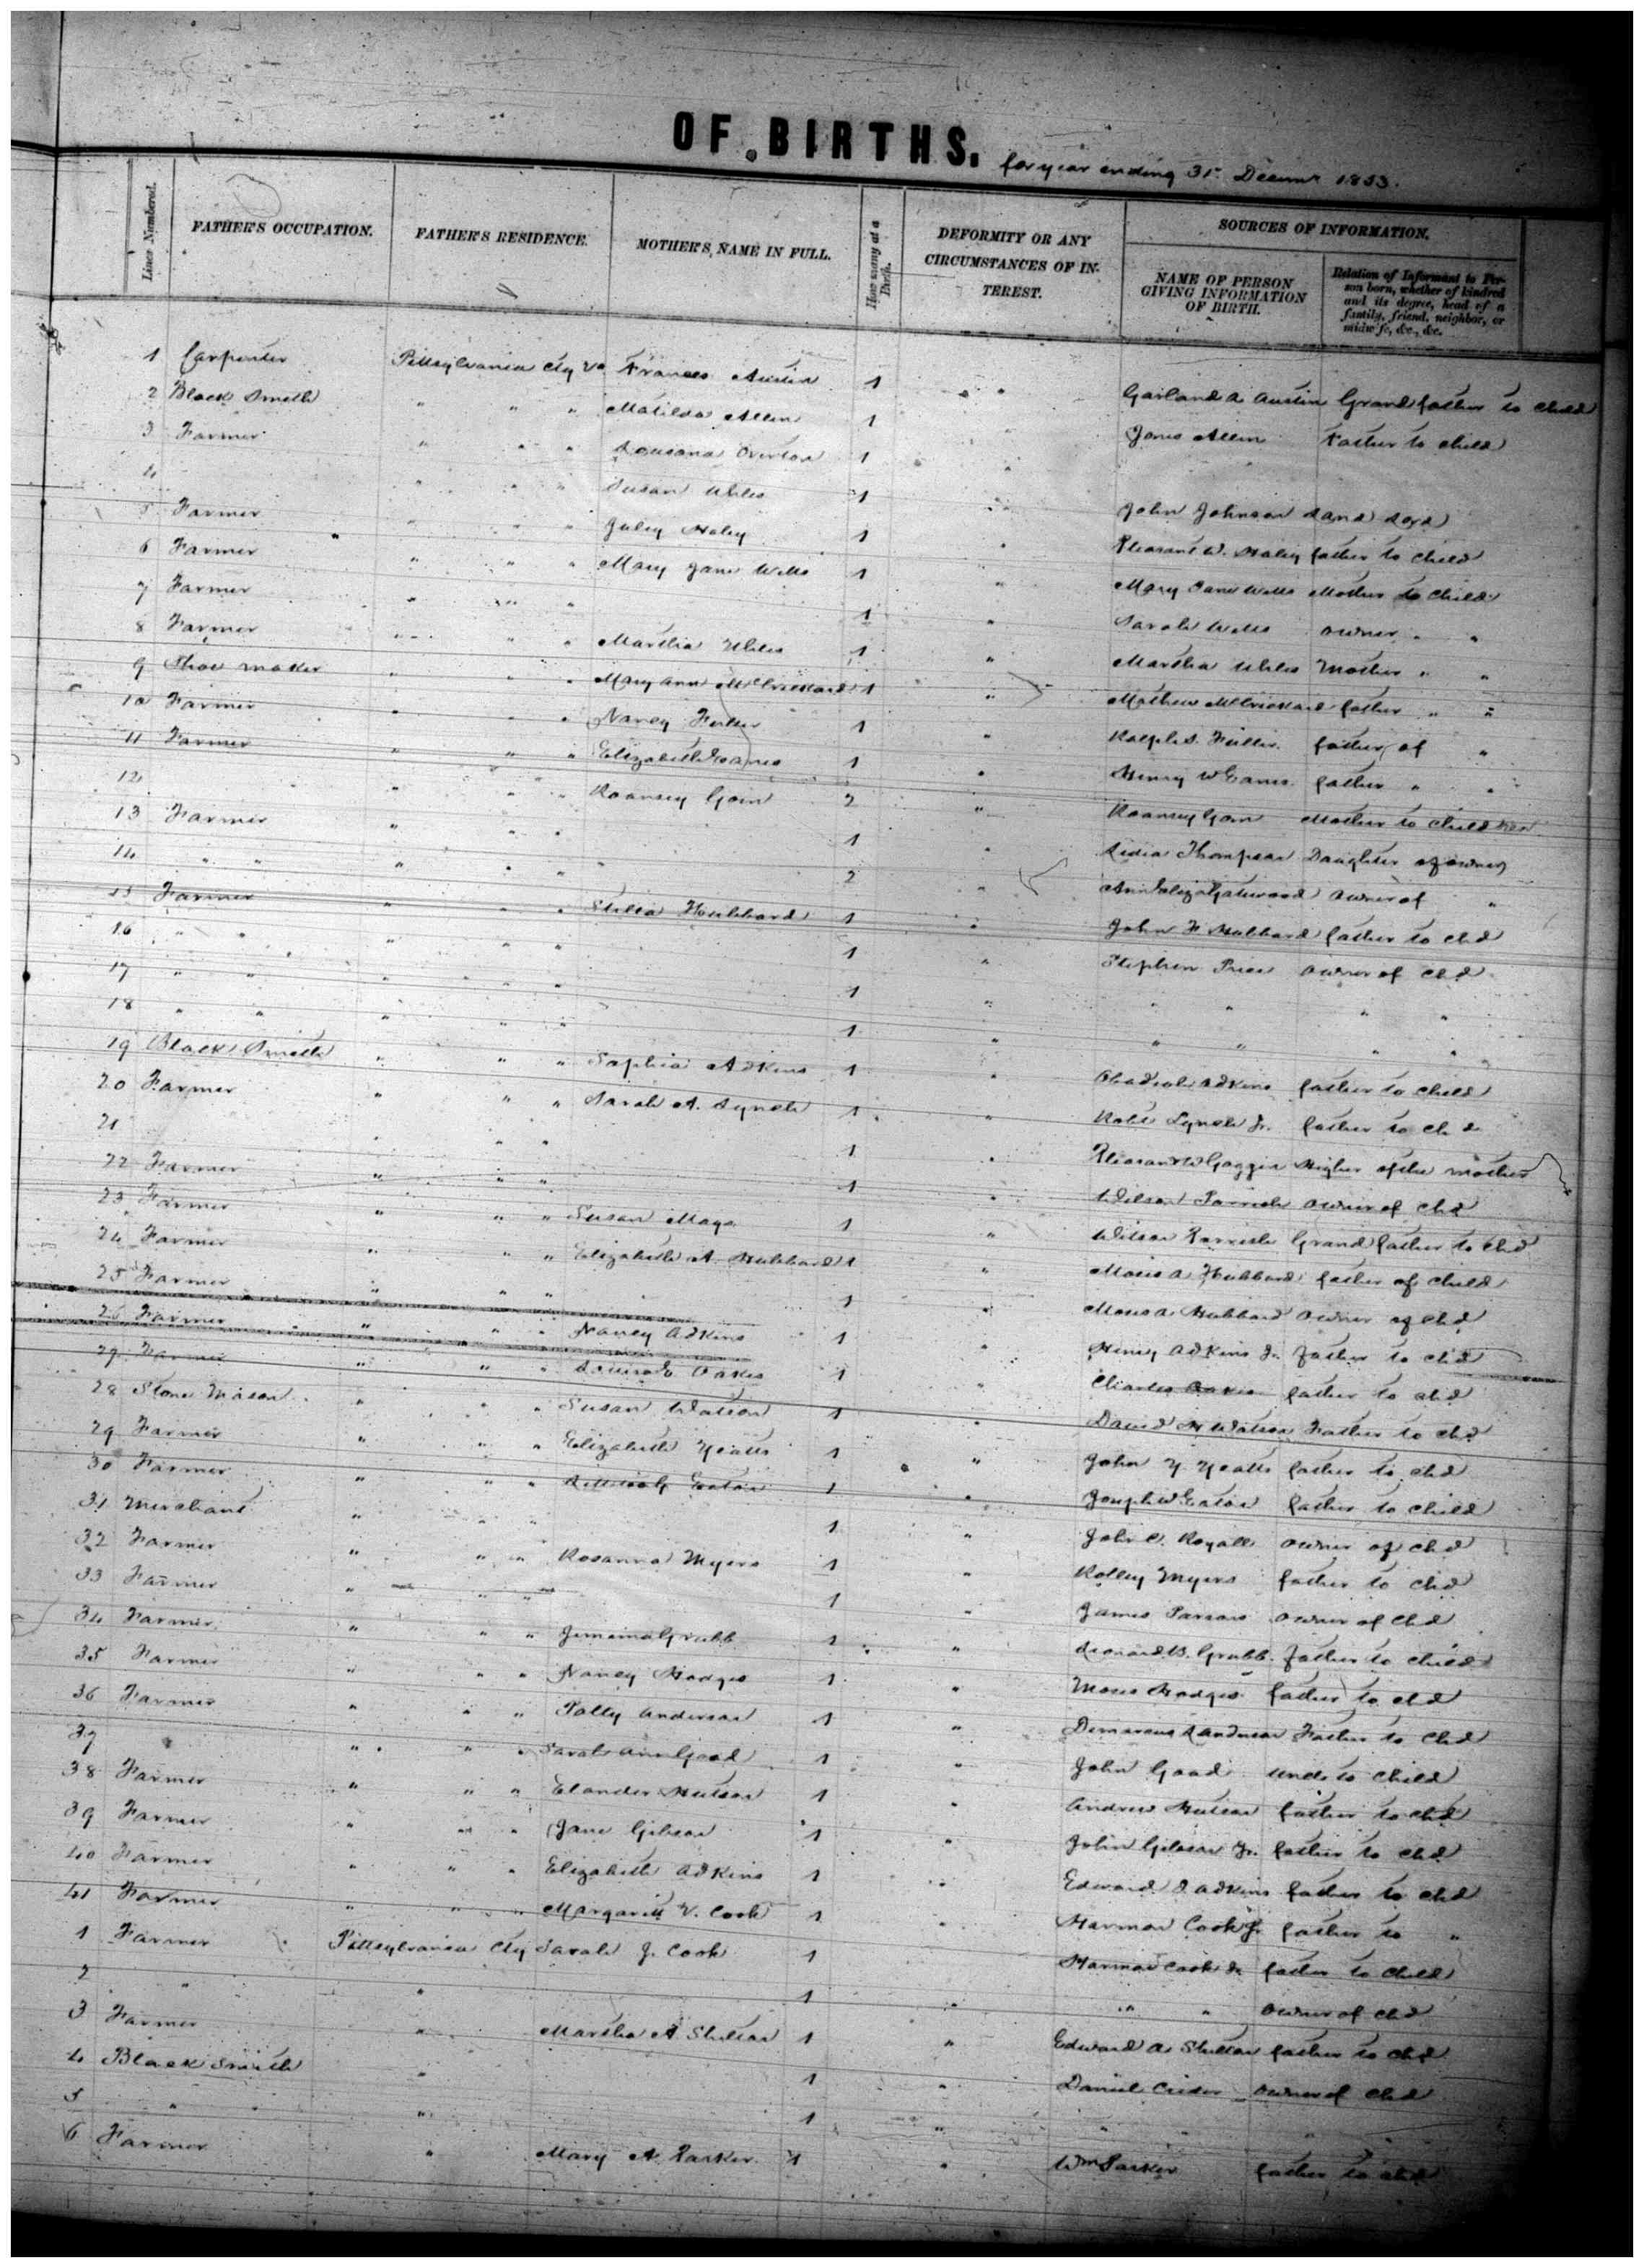 OF BIRTHS. for year ending 31st Decemr 1853.
Lines Numbered. FATHER'S OCCUPATION. FATHER'S RESIDENCE. MOTHER'S NAME IN FULL. How many at a Birth. DEFORMITY OR ANY CIRCUMSTANCES OF INTEREST. SOURCES OF INFORMATION.
NAME OF PERSON GIVING INFORMATION OF BIRTH. Relation of Informant to Person born, whether of kindred and its degree, head of a family, friend, neighbor, or midwife, &c., &c.
1 Carpenter Pittsylvania Cty Va Frances Austin 1 " Garland A Austin Grandfather to child
2 Black Smith " " " Matilda Allen 1 Jones Allen Father to child
3 Farmer " " " Overton 1 "
4 " " " Susan 1 " John Johnson Land Lord
5 Farmer " " " Juley Haley 1 " Pleasant W. Haley father to child
6 Farmer " " " Mary Jane Wells 1 " Mary Jane Wells Mother to child
7 Farmer " " " 1 " Sarah Wells owner " "
8 Farmer " " " Martha 1 " Martha Mother " "
9 Shoe maker " " " Mary Ann McCrickard 1 " Mathew McCrickard father " "
10 Farmer " " " Nancy Fuller 1 " Ralph S. Fuller father of "
11 Farmer " " " Elizabeth Eanes 1 " Henry W Eanes father " "
12 " " " Roansey Goin 2 " Roansey Goin Mother to children
13 Farmer " " " 1 " Lidia Thompson Daughter of owner
14 " " " " " 2 " Ann Eliza Gatewood Owner of "
15 Farmer " " Hubbard 1 " John F Hubbard father to chd
16 " " " " " 1 " Stephen Price owner of chd
17 " " " " " 1 " " " " "
18 " " " " " 1 " " " " "
19 Black Smith " " " Sophia Adkins 1 " Obadiah Adkins father to child
20 Farmer " " " Sarah A. Lynch 1 " Robt Lynch Jr. father to chd
21 " " " 1 " Pleasant W Goggin Higher of the mother
22 Farmer " " " 1 " Wilson Parrish owner of chd
23 Farmer " " " Susan Mays 1 " Wilson Parrish Grand father to chd
24 Farmer " " " Elizabeth A. Hubbard 1 " Moses A Hubbard father of child
25 Farmer " " " 1 " Moses A. Hubbard owner of chd
26 Farmer " " " Nancy Adkins 1 " Henry Adkins Jr. father to chd
27 Farmer " " " Oakes 1 " Charles Oakes father to chd
28 Stone Mason " " " Susan Watson 1 " David H Watson Father to chd
29 Farmer " " " Elizabeth Yeatts 1 " John Y. Yeatts father to chd
30 Farmer " " " Eaton 1 " Joseph W Eaton father to child
31 Merchant " " " 1 " John C. Royall owner of chd
32 Farmer " " " Rosanna Myers 1 " Rolley Myers father to chd
33 Farmer " " " 1 " James Parsons owner of chd
34 Farmer " " " Jemima Grubb 1 " Leonard B. Grubb father to child
35 Farmer " " " Nancy Hodges 1 " Moses Hodges father to chd
36 Farmer " " " Polly Anderson 1 " Father to chd
37 " " " Sarah Ann Goad 1 " John Goad uncle to child
38 Farmer " " " Elander Hutson 1 " Andrew Hutson father to chd
39 Farmer " " " Jane Gibson 1 " John Gibson Jr. father to chd
40 Farmer " " " Elizabeth Adkins 1 " Edward J. Adkins father to chd
41 Farmer " " " Margarett V. Cook 1 " Harmon Cook Jr father to "
1 Farmer Pittsylvania Cty Sarah J. Cook 1 Harmon Cook Jr father to child
2 " " 1 " " " owner of chd
3 Farmer " Martha A Shelton 1 " Edward A. Shelton father to chd
4 Black Smith " 1 " Daniel Crider owner of chd
5 " " 1 " " " "
6 Farmer " Mary A. Parker 1 " Wm Parker father to chd